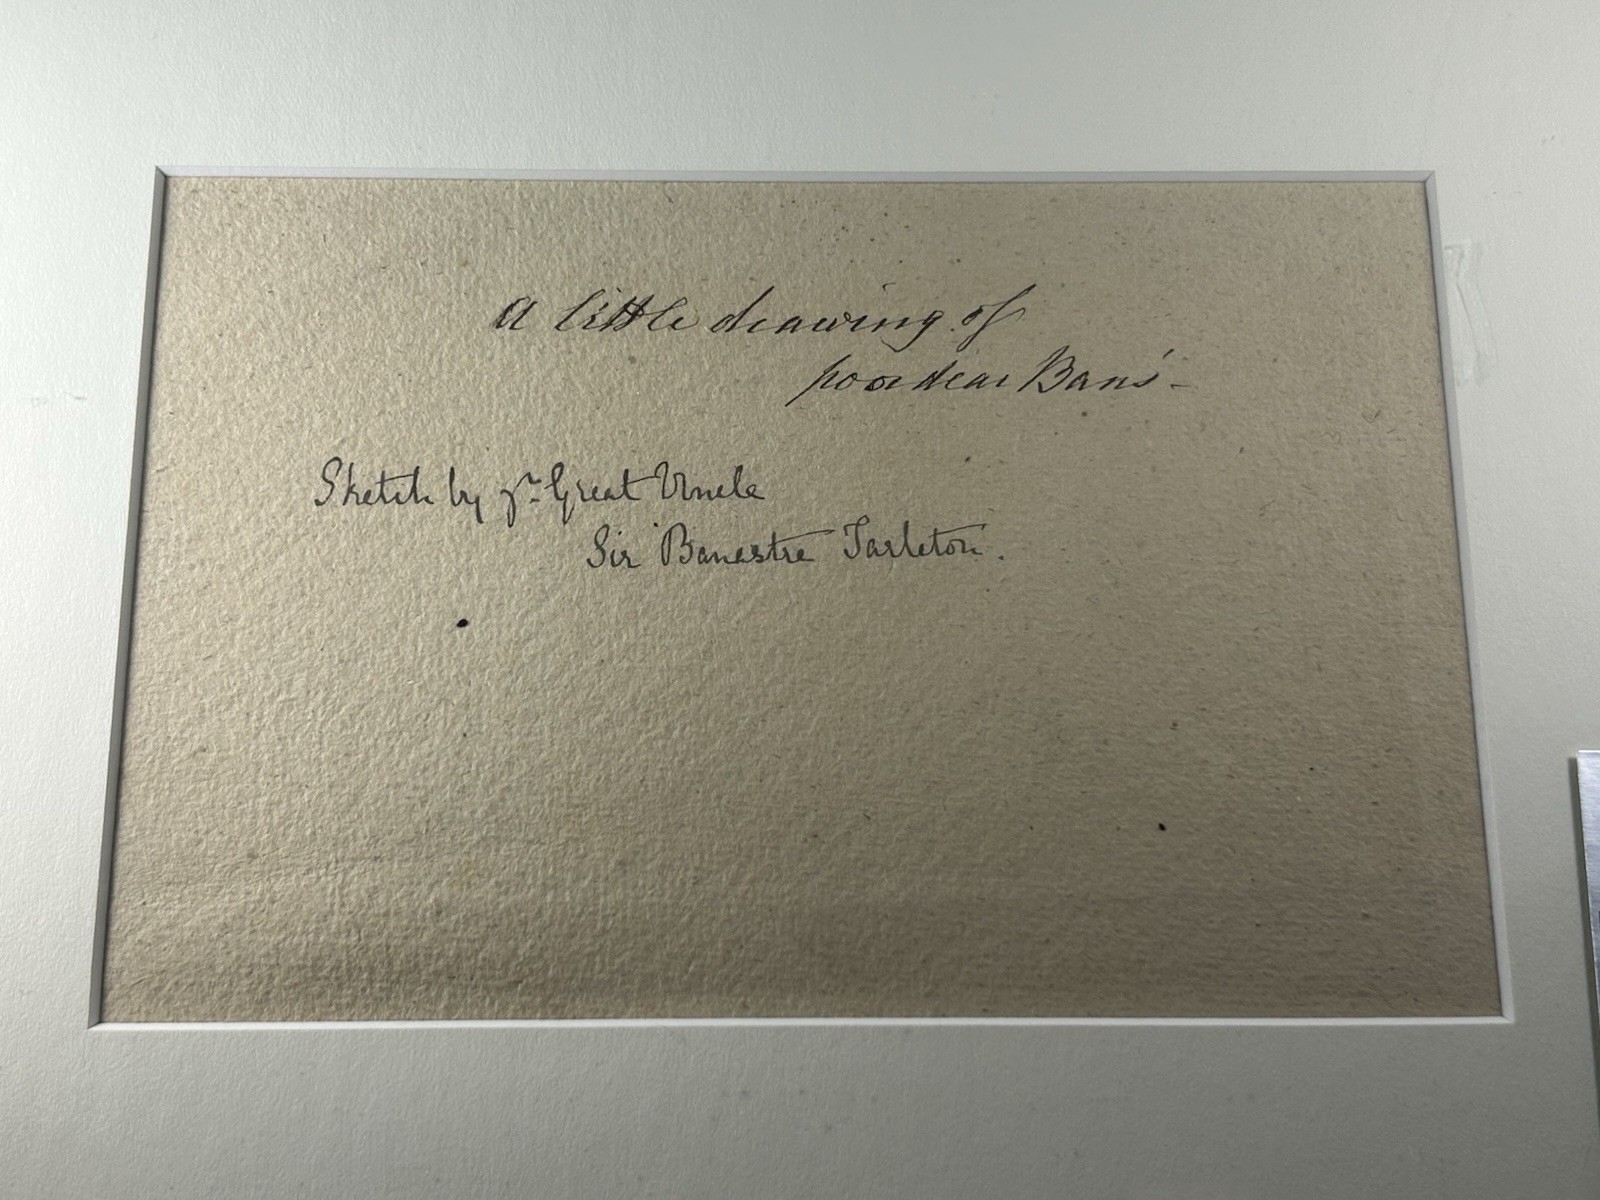 A little drawing of
poor dear Ban's -
Sketch by yr. Great Uncle
Sir Banastre Tarleton.